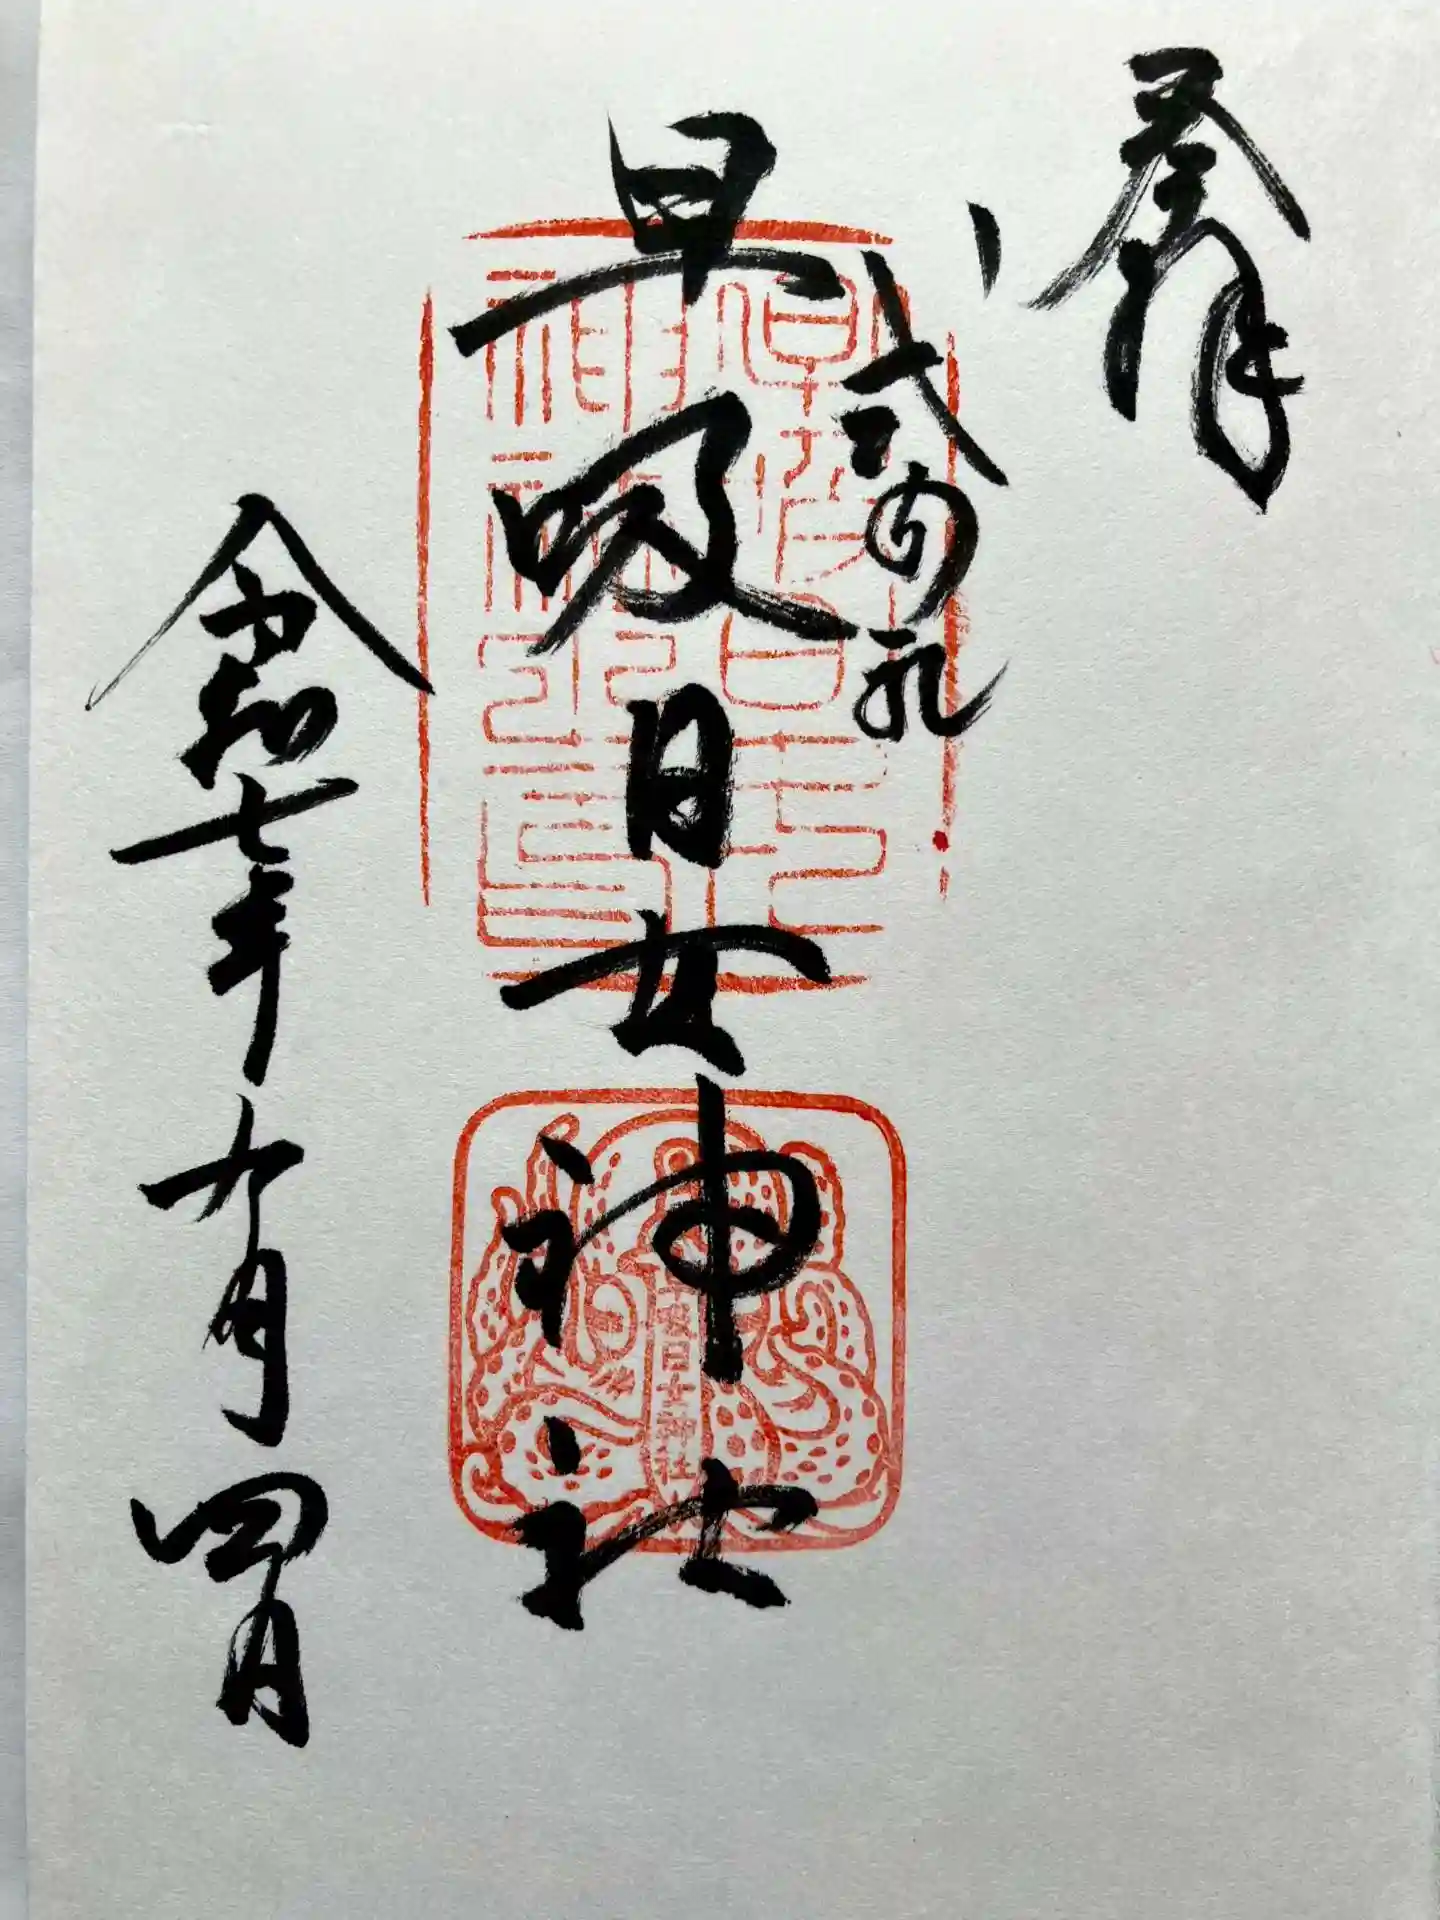 奉拝
式内社
早吸日女神社
令和七年九月四日
早吸日女神社